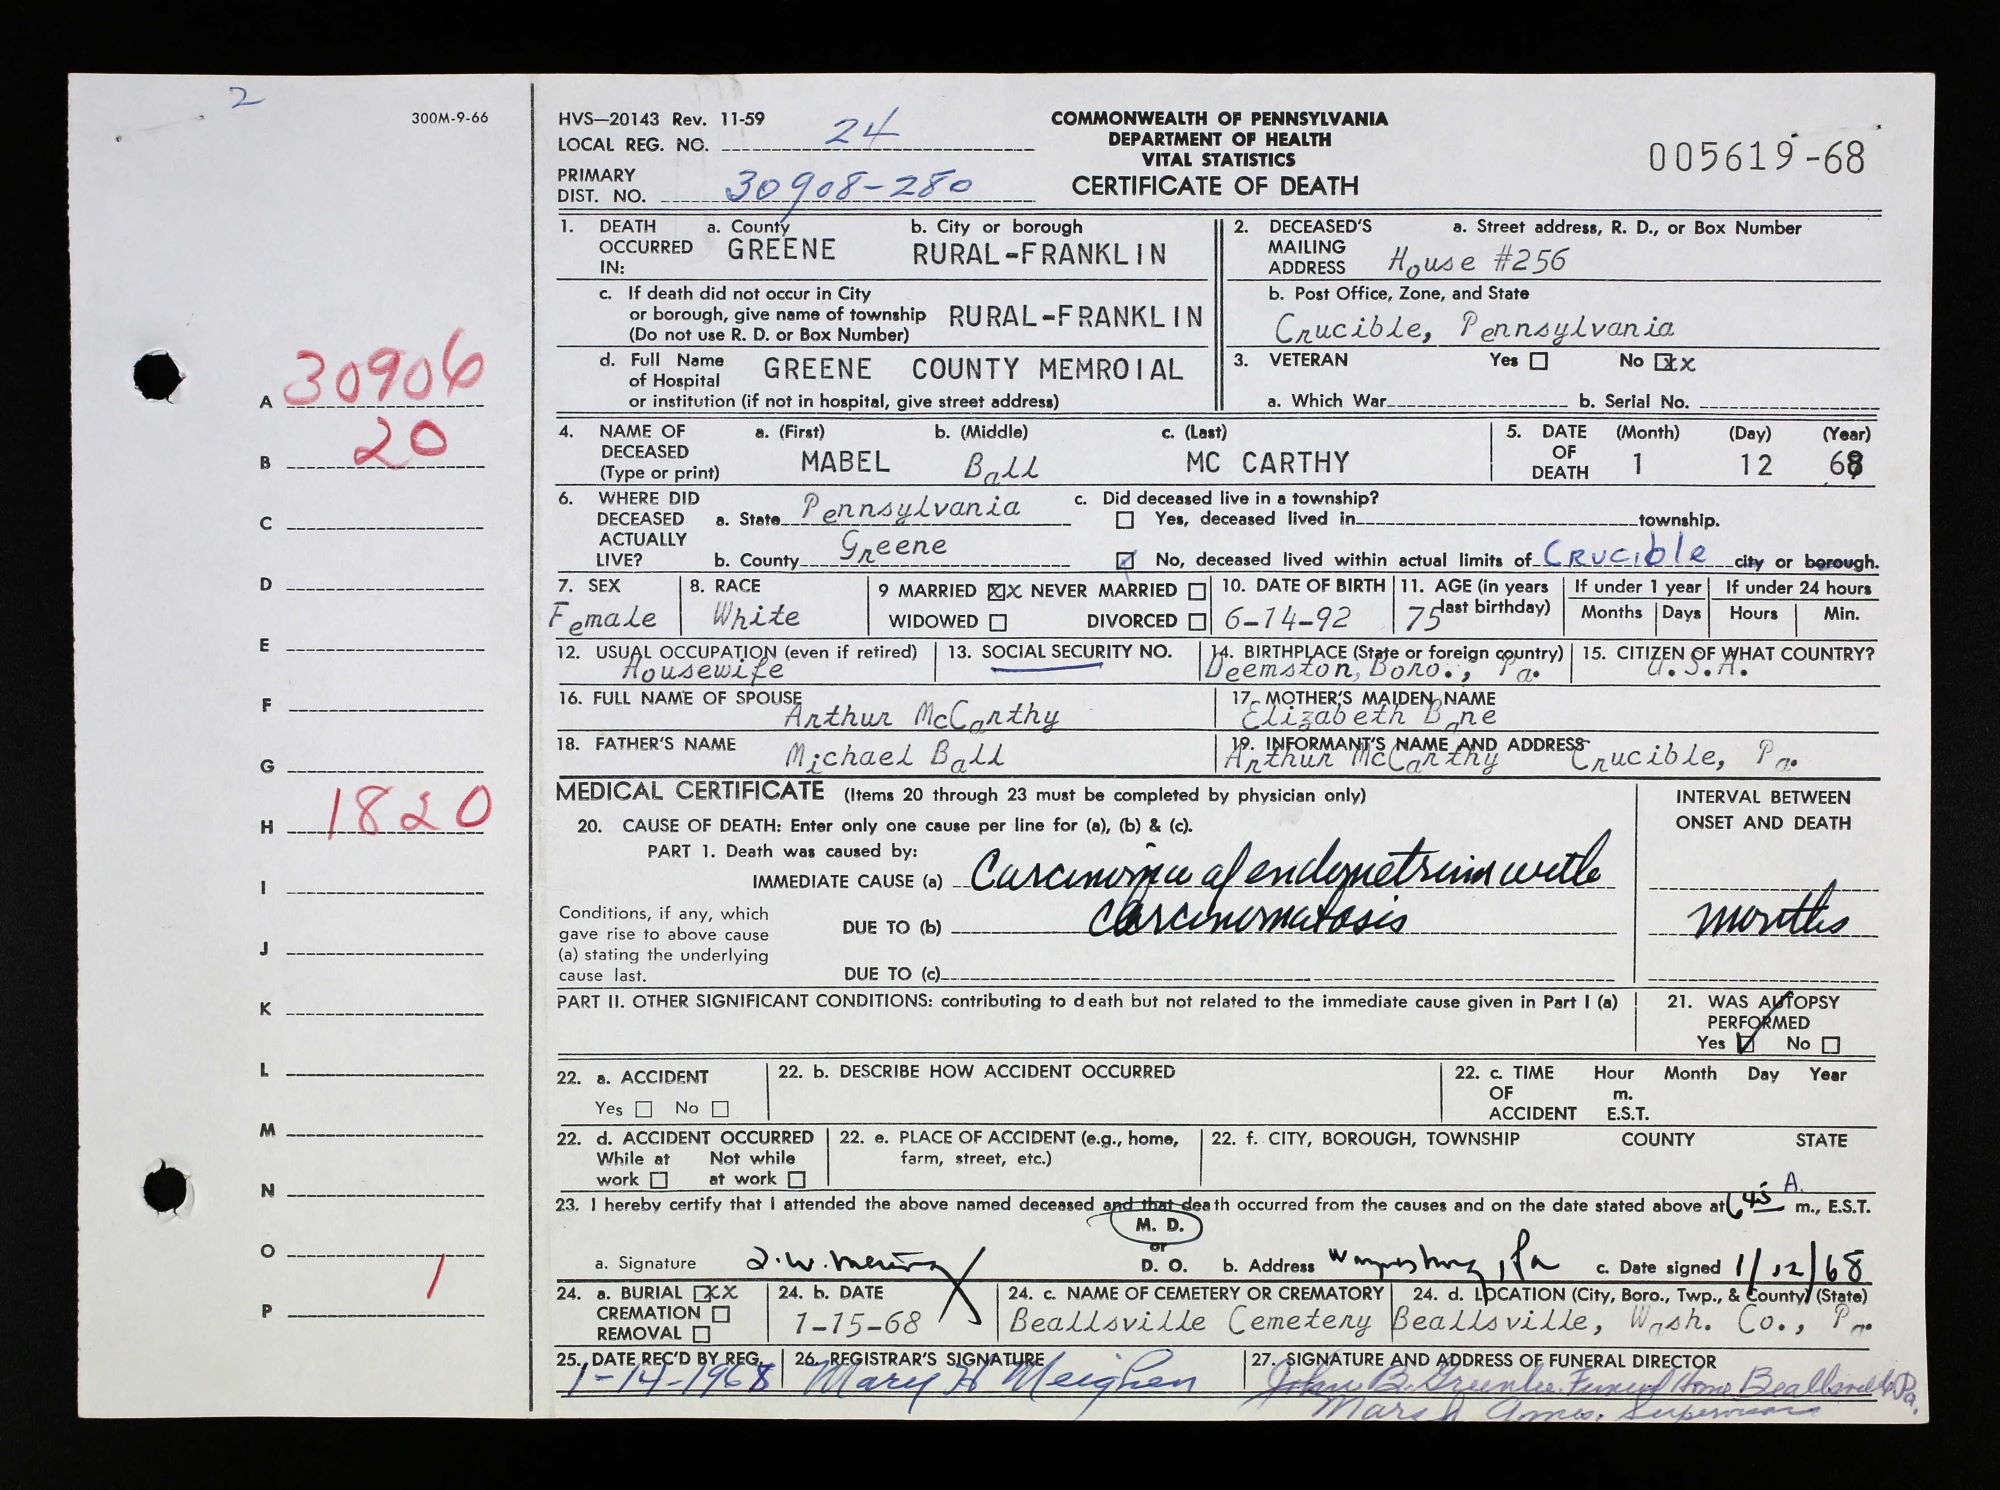 2
300M-9-66
HVS—20143 Rev. 11-59
LOCAL REG. NO. 24
PRIMARY
DIST. NO. 30908-280
COMMONWEALTH OF PENNSYLVANIA
DEPARTMENT OF HEALTH
VITAL STATISTICS
CERTIFICATE OF DEATH
005619-68
1. DEATH OCCURRED IN: a. County GREENE b. City or borough RURAL-FRANKLIN
c. If death did not occur in City
or borough, give name of township RURAL-FRANKLIN
(Do not use R. D. or Box Number)
d. Full Name
of Hospital GREENE COUNTY MEMROIAL
or institution (if not in hospital, give street address)
2. DECEASED'S MAILING ADDRESS a. Street address, R. D., or Box Number
House #256
b. Post Office, Zone, and State
Crucible, Pennsylvania
3. VETERAN Yes No XX
a. Which War b. Serial No.
4. NAME OF DECEASED (Type or print) a. (First) b. (Middle) c. (Last)
MABEL Ball MC CARTHY
5. DATE OF DEATH (Month) (Day) (Year)
1 12 68
6. WHERE DID DECEASED ACTUALLY LIVE?
a. State Pennsylvania
b. County Greene
c. Did deceased live in a township?
Yes, deceased lived in township.
No, deceased lived within actual limits of Crucible city or borough.
7. SEX
Female
8. RACE
White
9 MARRIED XX NEVER MARRIED
WIDOWED DIVORCED
10. DATE OF BIRTH
6-14-92
11. AGE (in years last birthday)
75
If under 1 year
Months Days
If under 24 hours
Hours Min.
12. USUAL OCCUPATION (even if retired)
Housewife
13. SOCIAL SECURITY NO.
14. BIRTHPLACE (State or foreign country)
Deemston, Boro., Pa.
15. CITIZEN OF WHAT COUNTRY?
U.S.A.
16. FULL NAME OF SPOUSE
Arthur McCarthy
17. MOTHER'S MAIDEN NAME
Elizabeth Bane
18. FATHER'S NAME
Michael Ball
19. INFORMANT'S NAME AND ADDRESS
Arthur McCarthy Crucible, Pa.
MEDICAL CERTIFICATE (Items 20 through 23 must be completed by physician only)
INTERVAL BETWEEN
ONSET AND DEATH
20. CAUSE OF DEATH: Enter only one cause per line for (a), (b) & (c).
PART 1. Death was caused by:
IMMEDIATE CAUSE (a) Carcinoma of endometrium with
Conditions, if any, which
gave rise to above cause
(a) stating the underlying
cause last.
DUE TO (b) Carcinomatosis months
DUE TO (c)
PART II. OTHER SIGNIFICANT CONDITIONS: contributing to death but not related to the immediate cause given in Part I (a)
21. WAS AUTOPSY
PERFORMED
Yes No
22. a. ACCIDENT
Yes No
22. b. DESCRIBE HOW ACCIDENT OCCURRED
22. c. TIME OF ACCIDENT Hour Month Day Year
m.
E.S.T.
22. d. ACCIDENT OCCURRED
While at work Not while at work
22. e. PLACE OF ACCIDENT (e.g., home,
farm, street, etc.)
22. f. CITY, BOROUGH, TOWNSHIP COUNTY STATE
23. I hereby certify that I attended the above named deceased and that death occurred from the causes and on the date stated above at 6 45 A. m., E.S.T.
M. D.
or
D. O.
a. Signature
b. Address Waynesburg, Pa
c. Date signed 1/12/68
24. a. BURIAL XX
CREMATION
REMOVAL
24. b. DATE
1-15-68
24. c. NAME OF CEMETERY OR CREMATORY
Beallsville Cemetery
24. d. LOCATION (City, Boro., Twp., & County) (State)
Beallsville, Wash. Co., Pa.
25. DATE REC'D BY REG.
1-14-1968
26. REGISTRAR'S SIGNATURE
Mary H Meighen
27. SIGNATURE AND ADDRESS OF FUNERAL DIRECTOR
John B. Greenlee Funeral Home Beallsville Pa.
Supervisor
A 30906
B 20
C
D
E
F
G
H 1820
I
J
K
L
M
N
O
P 1